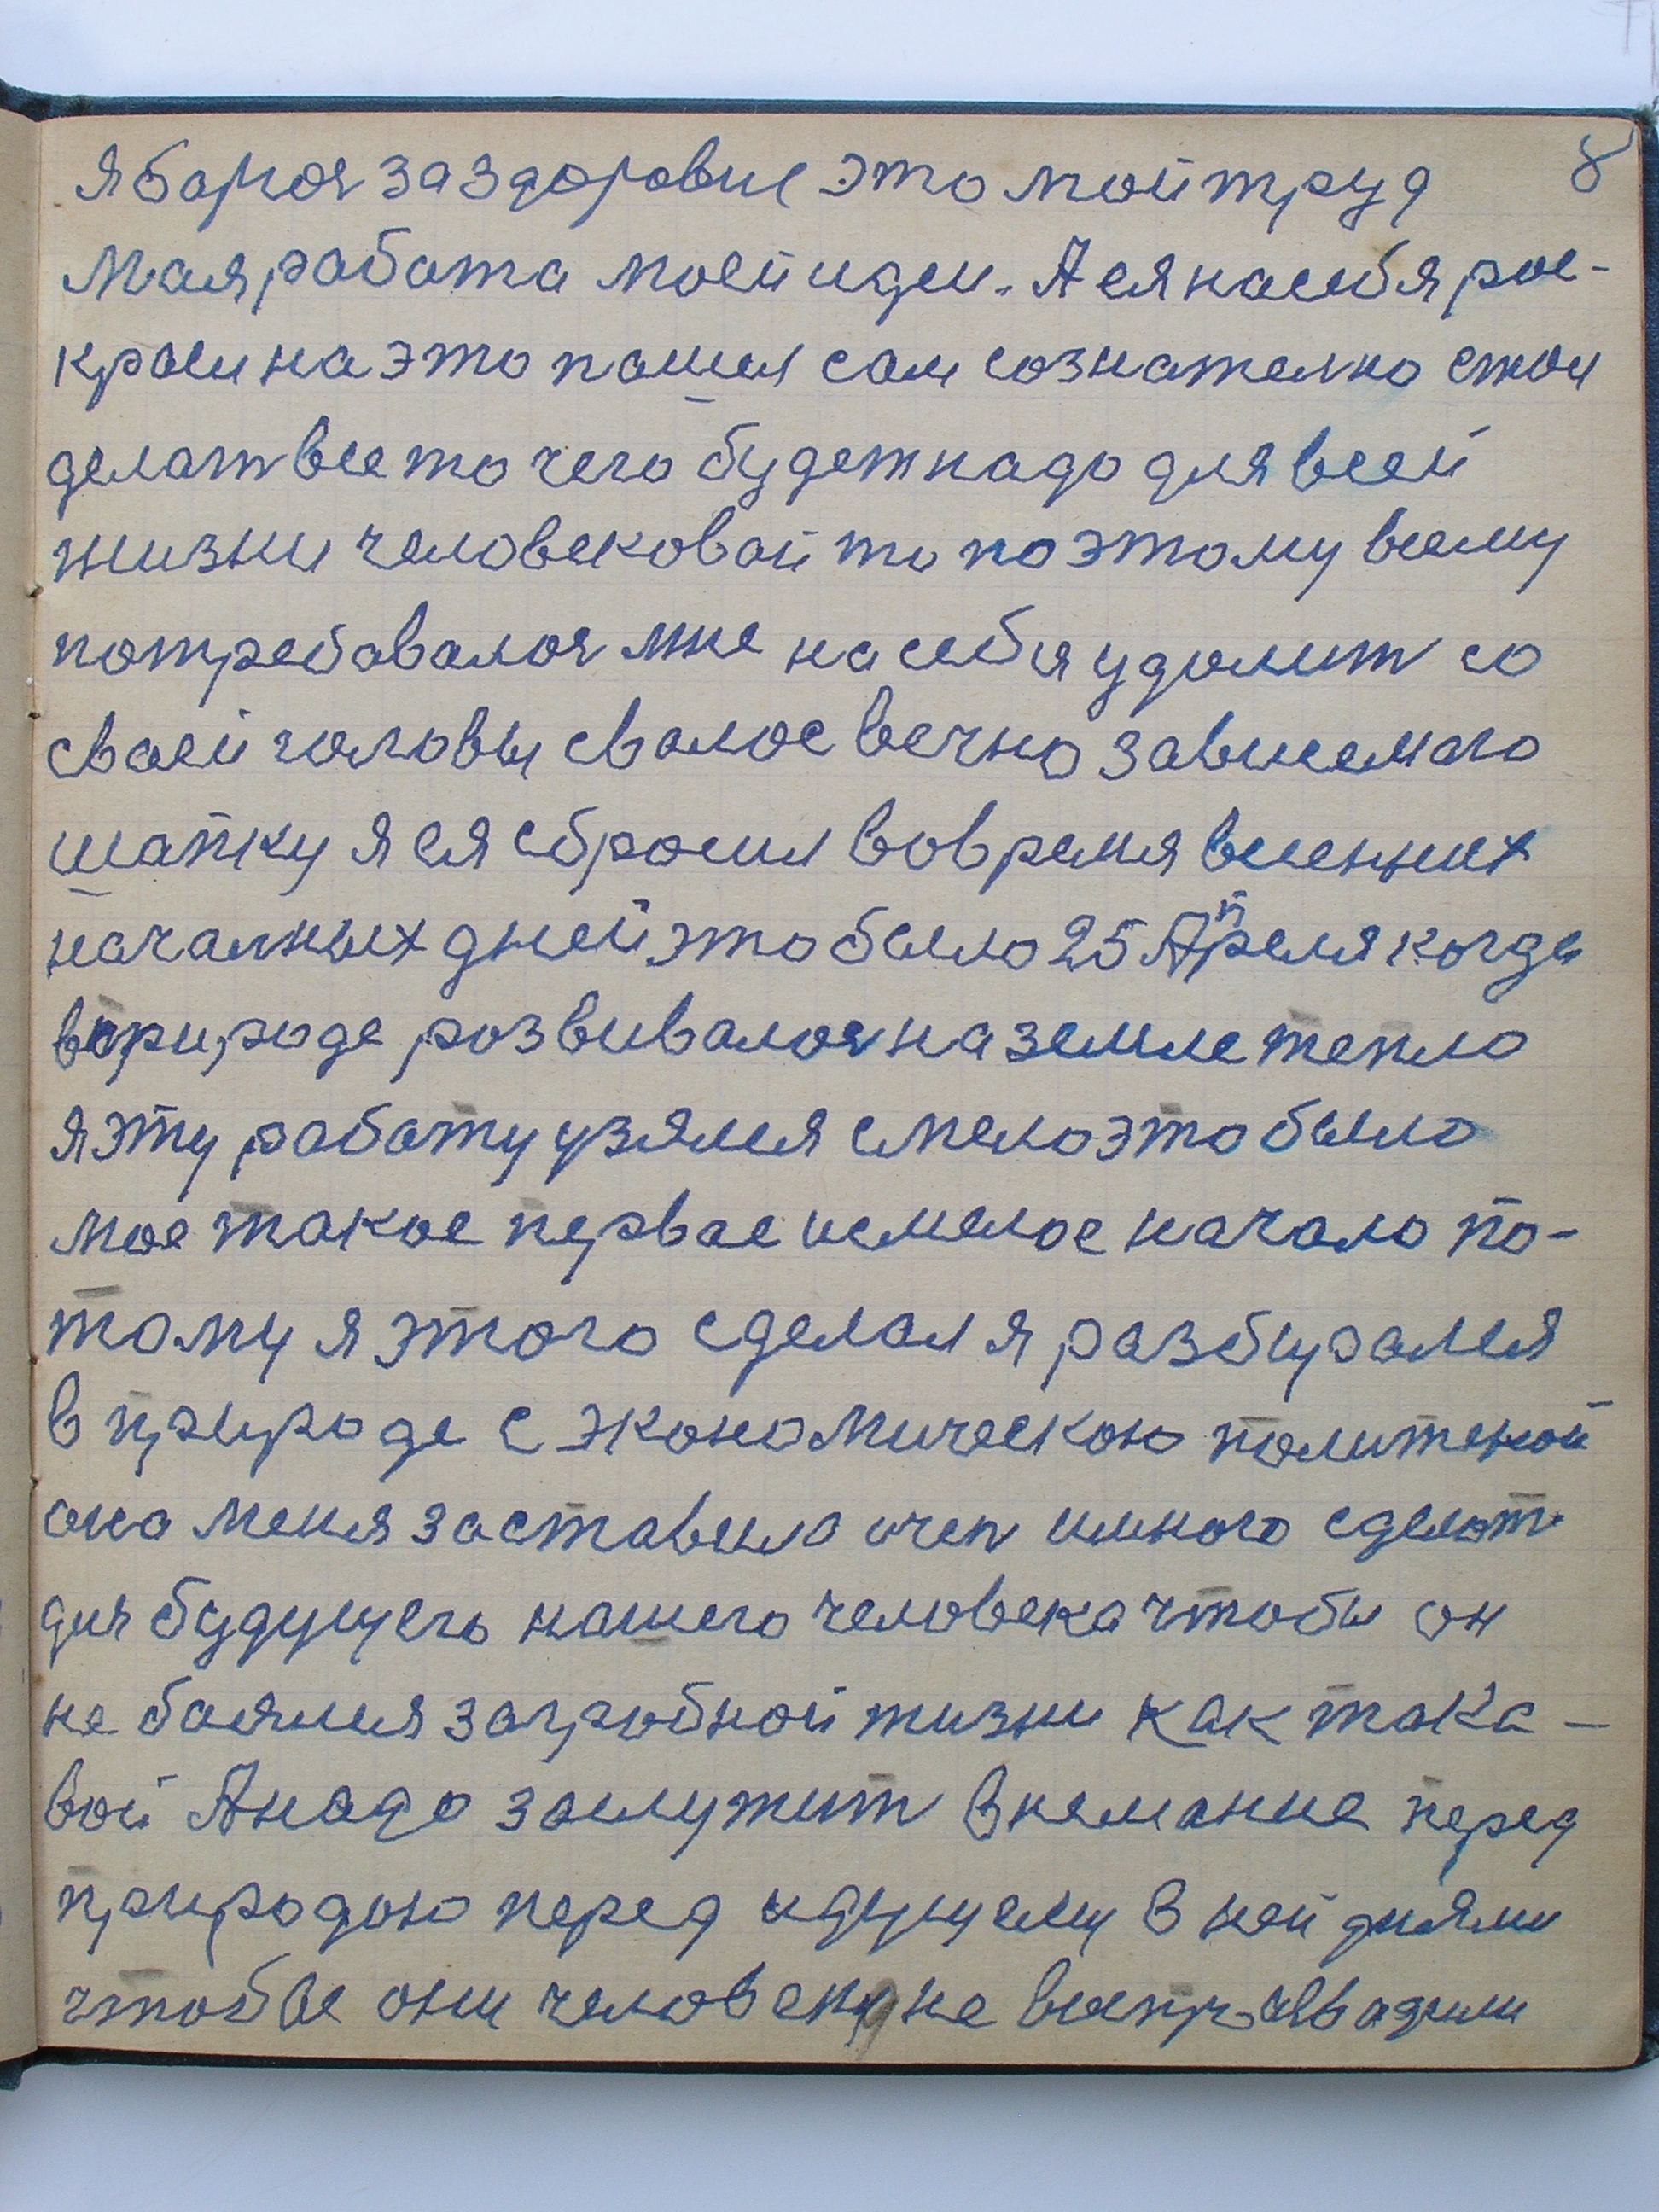 8
я борюя за здоровие это мой труд
Мая работа моей идеи. А ея на себя рос-
крыи на это пашел сам сознателно стал
делат все то чего будет надо для всей
жизни человековай то по этому всему
потребавалоя мне на себя удалит со
сваей головы свалое вечно зависемаго
шапку я ея сбросил вовремя висенних
началных дней это было 25 Апреля когда
в природе розвивалоя на земле тепло
я эту работу узялся смело это было
мое такое первае и смелое начало по-
тому я этого сделал я разбирался
в природе с экономическою политекой
она меня заставила очен имного сделат
для будущего нашего человека чтобы он
не баялися загробной жизни как така-
вой А надо заслужит внемание перед
природою перед идущему в ней днями
чтобы они человеку не